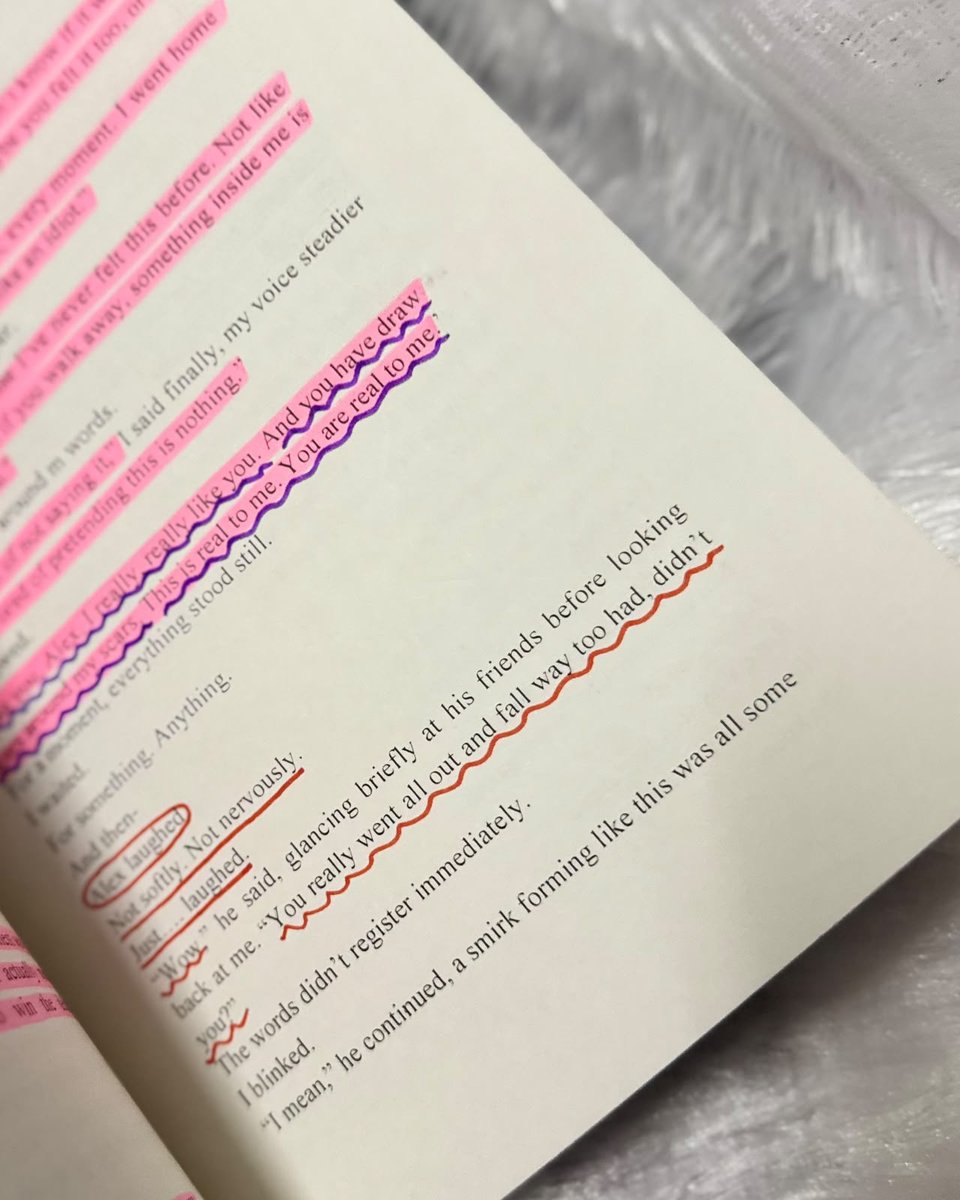 I know if it w
be you felt it too, or
every moment. I went home
as an idiot."
I've never felt this before. Not like
if you walk away, something inside me is
around m words.
of not saying it," I said finally, my voice steadier
of pretending this is nothing."
Alex. I really, really like you. And you have draw
my scars. This is real to me. You are real to me."
For a moment, everything stood still.
I waited.
For something. Anything.
And then-
Alex laughed
Not softly. Not nervously.
Just.... laughed.
"Wow," he said, glancing briefly at his friends before looking
back at me. "You really went all out and fall way too had, didn't
you?"
The words didn't register immediately.
I blinked.
"I mean," he continued, a smirk forming like this was all some
actually
win the